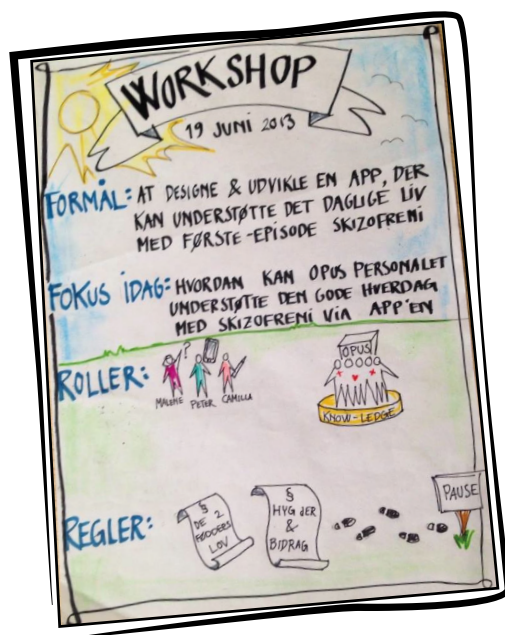 WORKSHOP
19 JUNI 2013
FORMÅL: AT DESIGNE & UDVIKLE EN APP, DER
KAN UNDERSTØTTE DET DAGLIGE LIV
MED FØRSTE-EPISODE SKIZOFRENI
FOKUS IDAG: HVORDAN KAN OPUS PERSONALET
UNDERSTØTTE DEN GODE HVERDAG
MED SKIZOFRENI VIA APP'EN
ROLLER:
?
MALENE PETER CAMILLA
OPUS
KNOW-LEDGE
REGLER:
§
DE 2
FØDDERS
LOV
§
HYG JER
&
BIDRAG
PAUSE